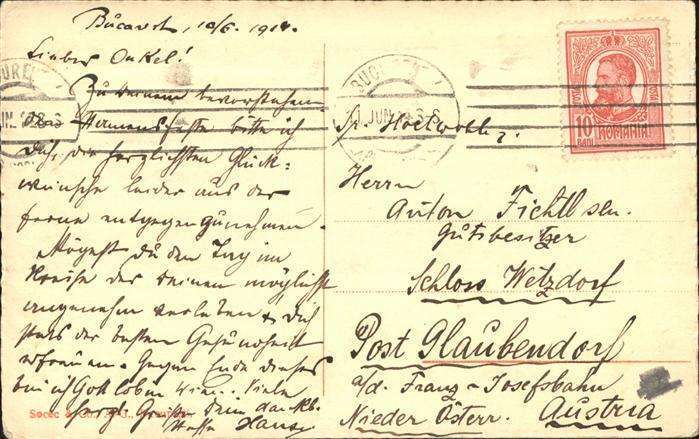 Bucarest, 10/6. 1914.
Lieber Onkel!
Zu Deinem bevorstehenden
Namensfeste bitte ich
Dich, die herzlichsten Glück-
wünsche leider aus der
Ferne entgegenzunehmen.
Mögest du den Tag im
Kreise der Deinen möglichst
angenehm verleben & Dich
stets der besten Gesundheit
erfreuen. Gegen Ende dieses
bin ich Gott lob in Wien. Viele
herzl. Grüße Dein dankb.
Neffe Hans
Socec &
BUCUREȘTI
JUN.
10 BANI
ROMANIA
Sr. Hochwohlg.
Herrn
Anton Fichtl sen.
Gutsbesitzer
Schloss Wetzdorf
Post Glaubendorf
a/d. Franz-Josefsbahn
Nieder Österr. Austria